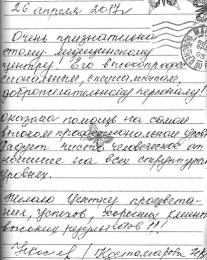 26 апреля 2017г
Очень признательна
этому медицинскому
центру! Его высокопрофес-
сиональным, специалистам,
доброжелательному персоналу!
Оказана помощь на самом
высоком профессиональном уровне
Радует чисто человеческое от-
ношение на всех структурных
уровнях.
Желаю Центру процвета-
ния, успехов, хороших клиентов
высоких результатов!!!